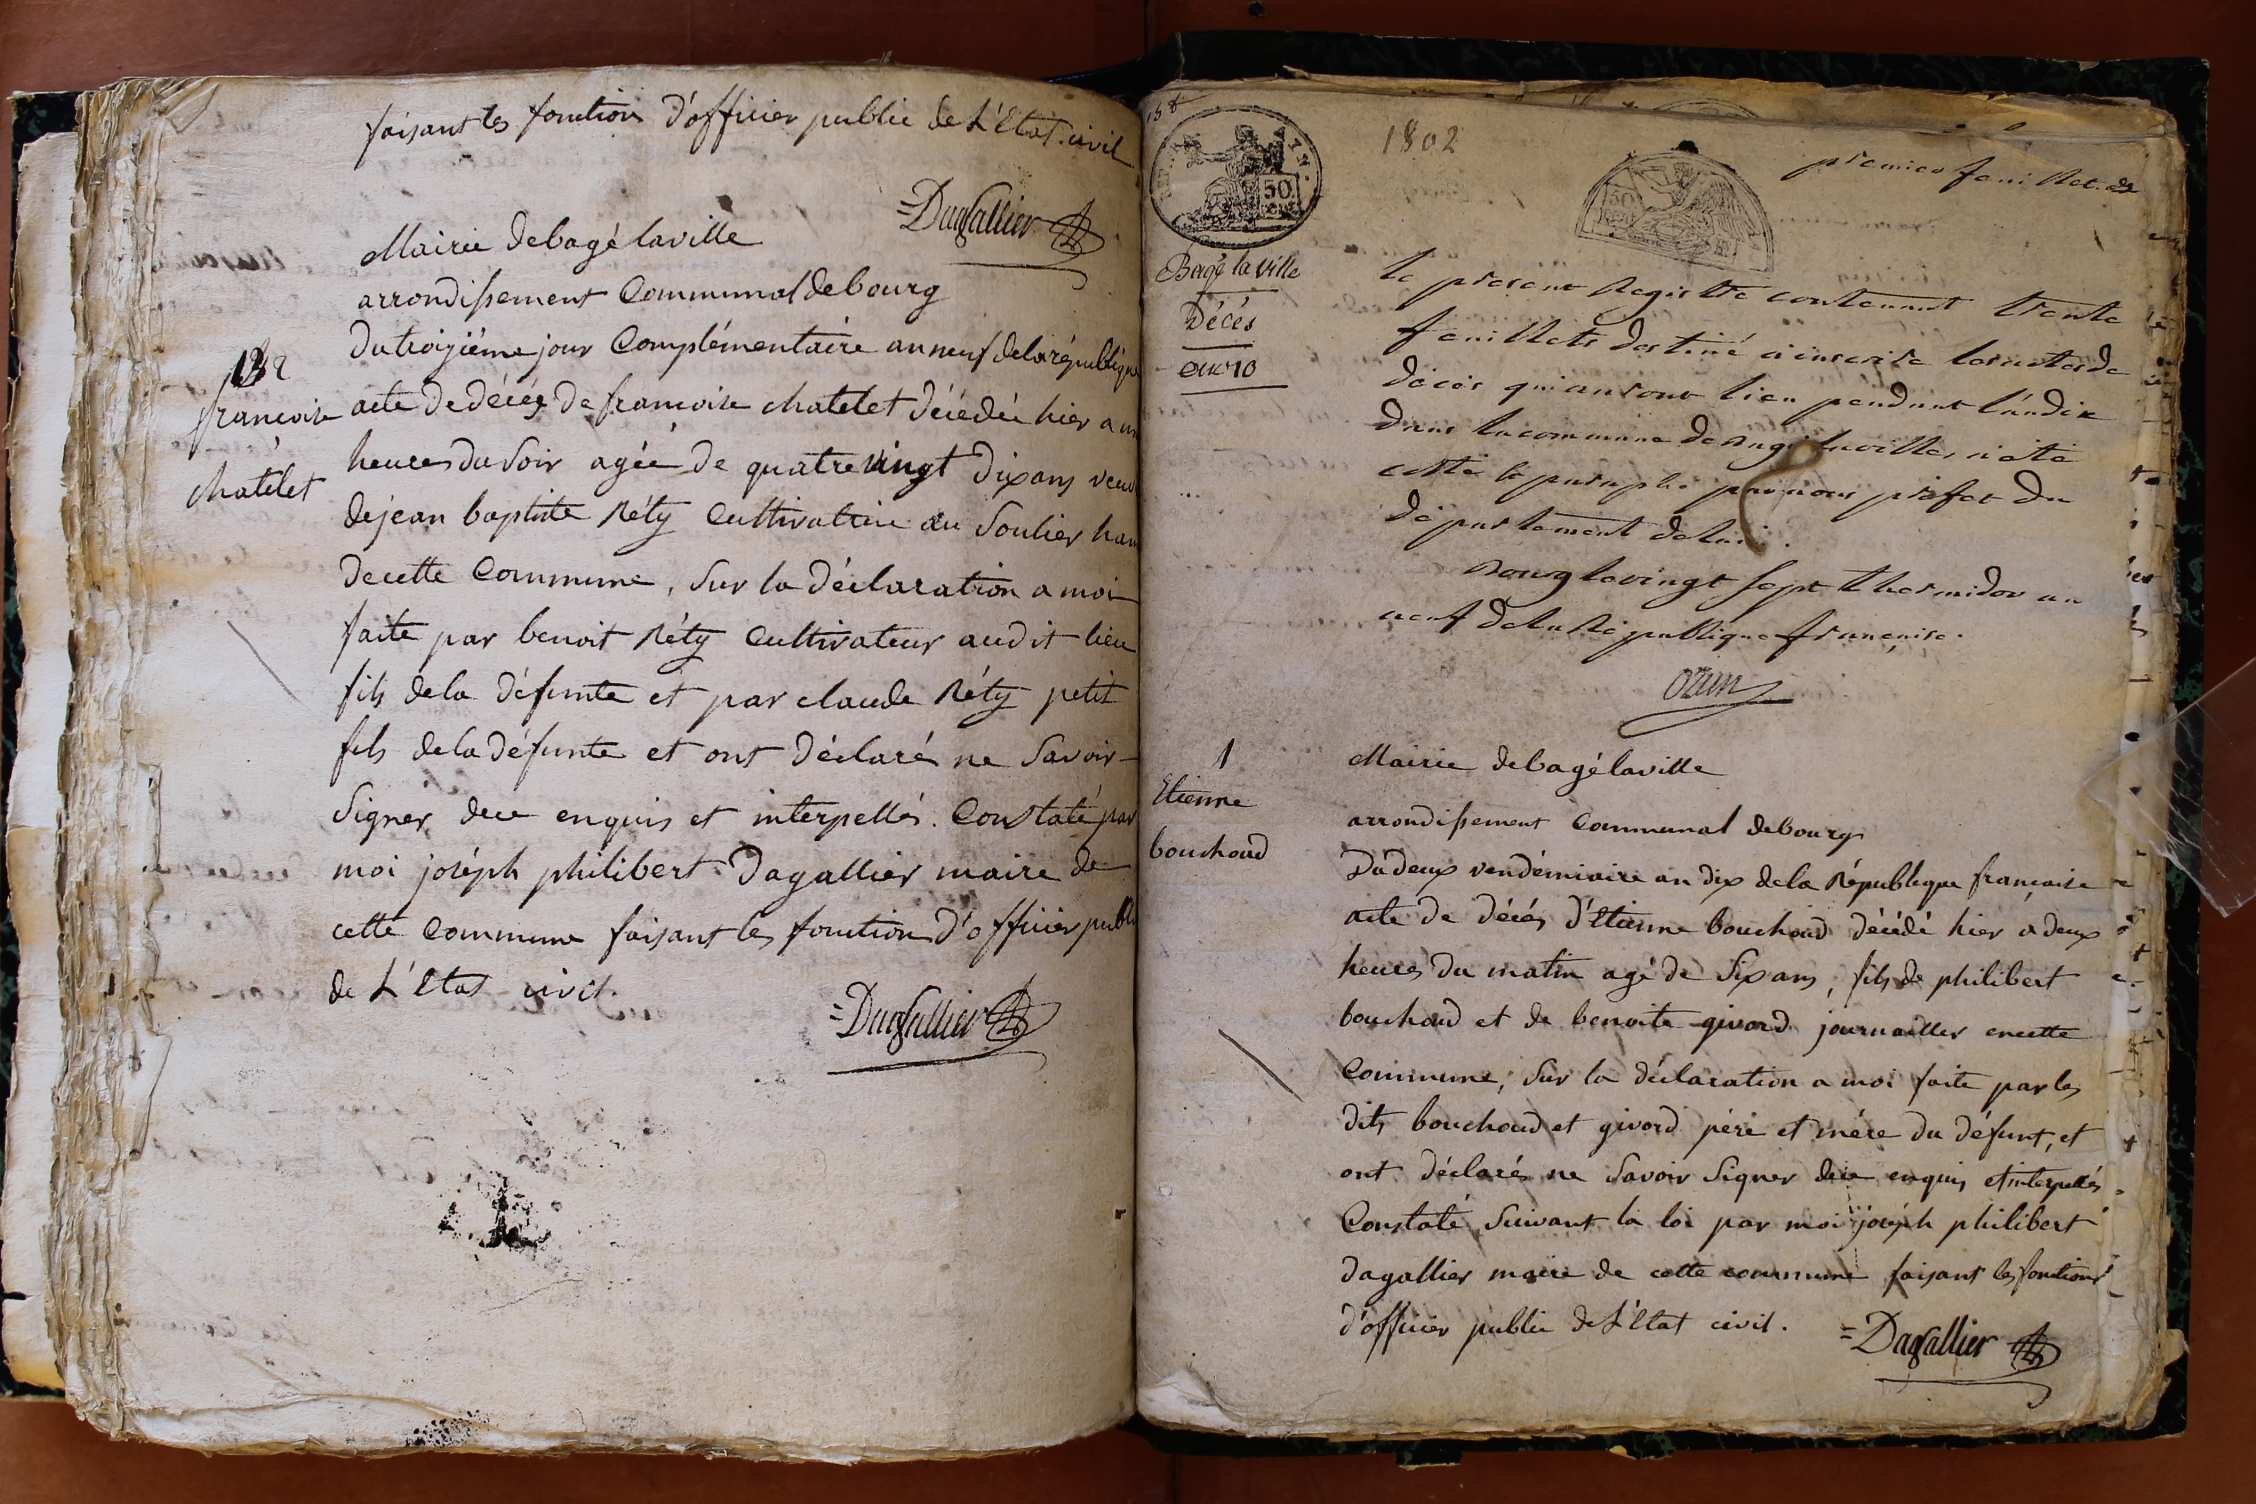 faisant les fonction d'officier public de L'Etat civil
=Dagallier
Mairie de bagé laville
arrondissement Communal de bourg
du troizième jour Complémentaire an neuf de la république
francoise
chatelet
acte de décés de francoise chatelet décédée hier a
heures du soir agée de quatre vingt dix ans
de jean baptiste Réty Cultivatrice au Soulier
de cette Commune, Sur la déclaration a moi
faite par benoit Réty Cultivateur audit lieu
fils de la défunte et par claude Réty petit
fils de la défunte et ont déclaré ne Savoir
Signer de ce enquis et interpellés. Constaté par
moi joséph philibert Dagallier maire de
cette Commune faisant les fonction d'officier
de L'Etat civil.
=Dagallier
1802
premier feuillet
50
50
Bagé la ville
Décés
an 10
le présent Registre contenant trente
feuillets destiné à inscrire les actes de
décès qui auront lieu pendant l'an dix
dans la commune de Bagé laville, a été
cotté & paraphé par nous préfet du
département de l'ain.
Bourg le vingt sept thermidor an
neuf de la République française.
Ozun
1
Etienne
bouchoud
Mairie de bagé laville
arrondissement Communal de bourg
Du deux vendémiaire an dix de la République francaise
acte de décés d'Etienne bouchoud décédé hier à deux
heures du matin agé de Six ans, fils de philibert
bouchoud et de benoite givord journallier en cette
Commune, Sur la déclaration a moi faite par les
dits bouchoud et givord pére et mére du défunt, et
ont déclaré ne Savoir Signer de ce enquis et interpellés
Constaté Suivant la loi par moi joséph philibert
dagallier maire de cette commune faisant les fonctions
d'officier public de L'Etat civil.
=Dagallier